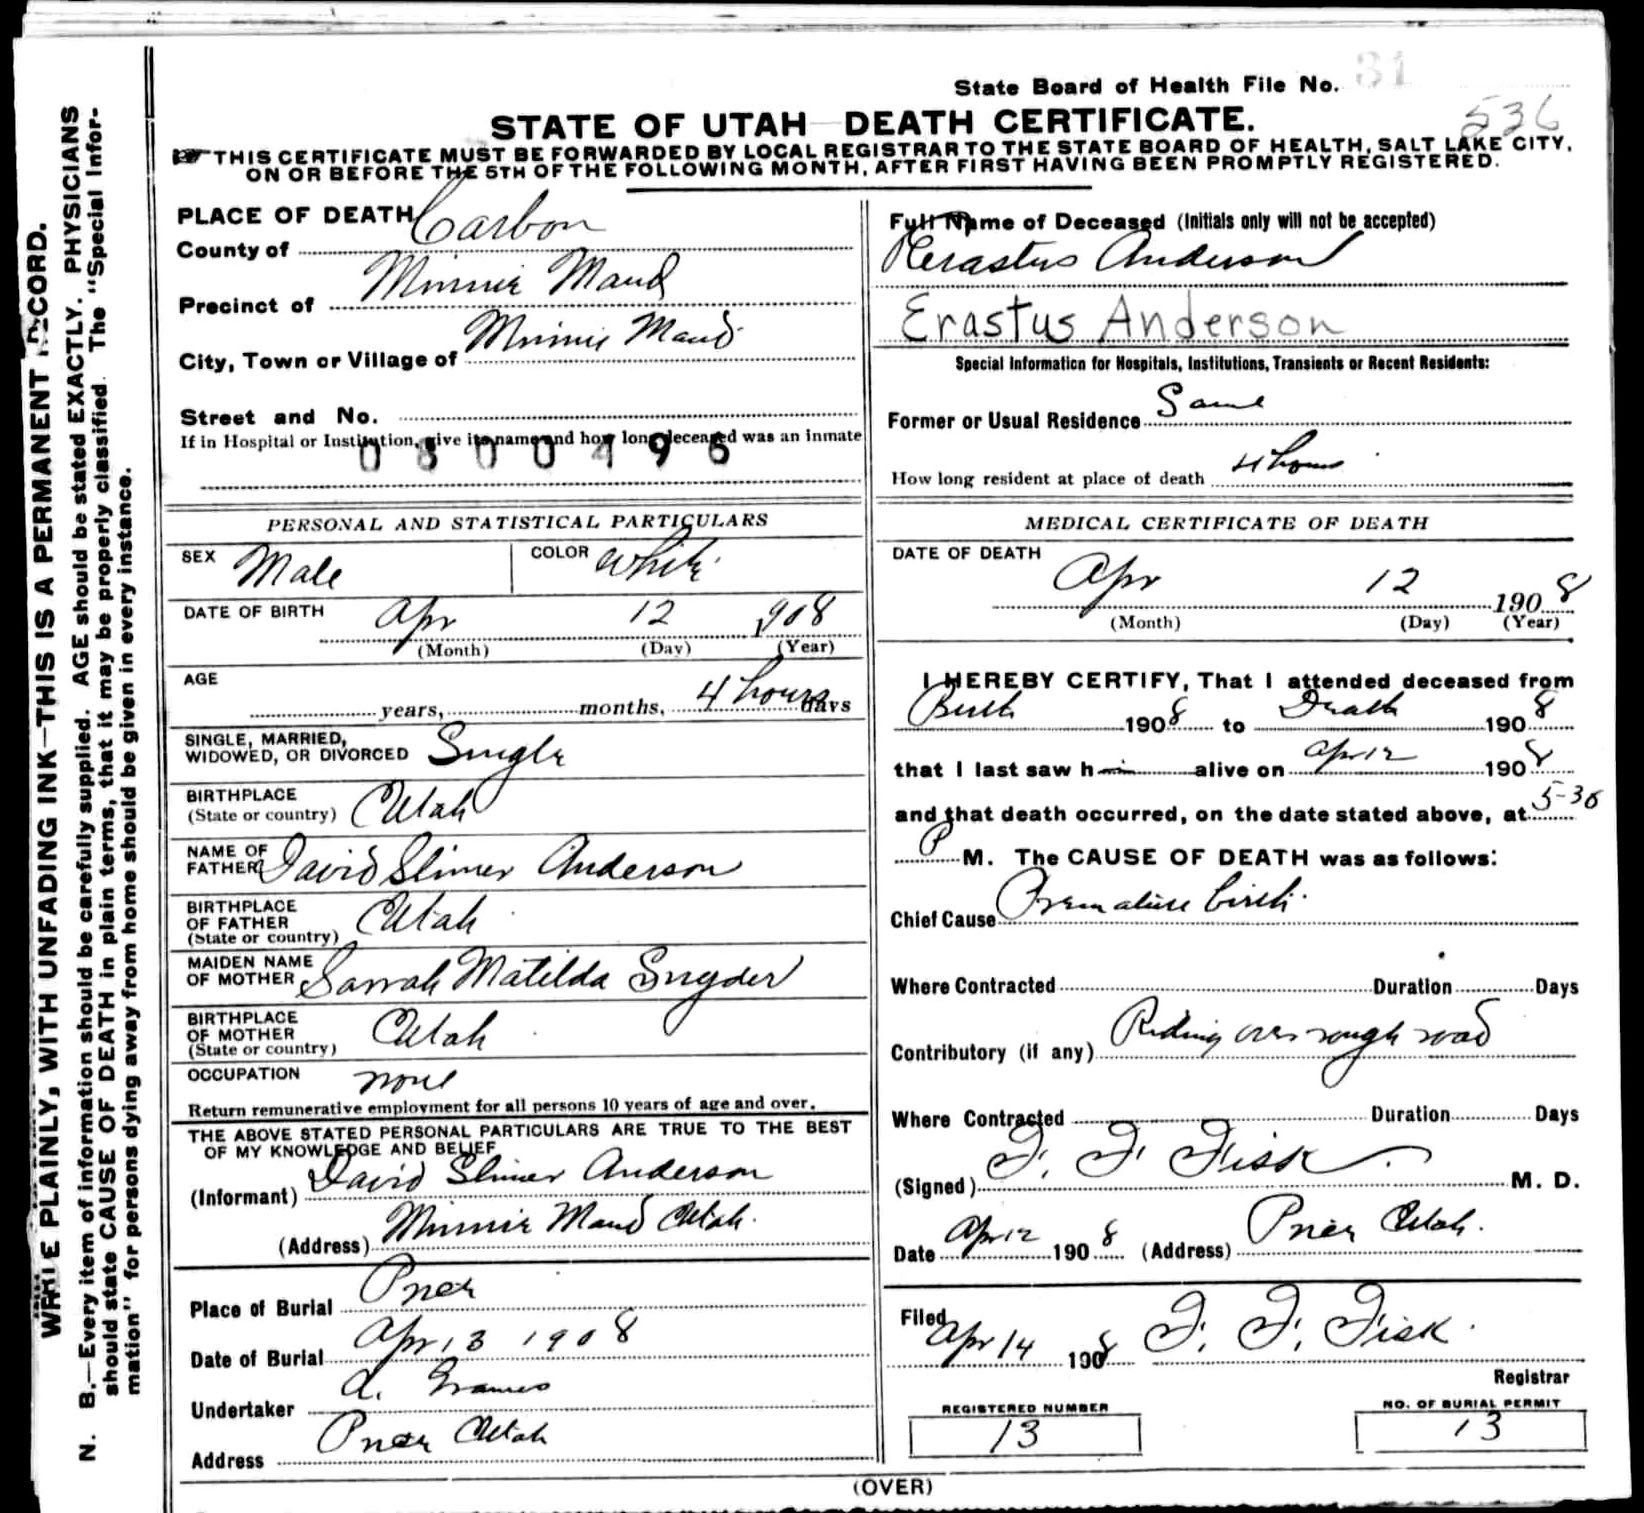 State Board of Health File No. 31
536
STATE OF UTAH DEATH CERTIFICATE.
THIS CERTIFICATE MUST BE FORWARDED BY LOCAL REGISTRAR TO THE STATE BOARD OF HEALTH, SALT LAKE CITY,
ON OR BEFORE THE 5TH OF THE FOLLOWING MONTH, AFTER FIRST HAVING BEEN PROMPTLY REGISTERED.
WRITE PLAINLY, WITH UNFADING INK—THIS IS A PERMANENT RECORD.
N. B.—Every item of information should be carefully supplied. AGE should be stated EXACTLY. PHYSICIANS
should state CAUSE OF DEATH in plain terms, that it may be properly classified. The "Special Infor-
mation" for persons dying away from home should be given in every instance.
PLACE OF DEATH
County of Carbon
Precinct of Minnie Maud
City, Town or Village of Minnie Maud
Street and No.
If in Hospital or Institution, give its name and how long deceased was an inmate
0800496
PERSONAL AND STATISTICAL PARTICULARS
SEX Male COLOR White
DATE OF BIRTH Apr 12 1908
(Month) (Day) (Year)
AGE
years, months, 4 hours days
SINGLE, MARRIED,
WIDOWED, OR DIVORCED Single
BIRTHPLACE
(State or country) Utah
NAME OF
FATHER David Slimer Anderson
BIRTHPLACE
OF FATHER Utah
(State or country)
MAIDEN NAME
OF MOTHER Sarrah Matilda Snyder
BIRTHPLACE
OF MOTHER Utah
(State or country)
OCCUPATION none
Return remunerative employment for all persons 10 years of age and over.
THE ABOVE STATED PERSONAL PARTICULARS ARE TRUE TO THE BEST
OF MY KNOWLEDGE AND BELIEF
(Informant) David Slimer Anderson
(Address) Minnie Maud Utah.
Place of Burial Price
Date of Burial Apr 13 1908
Undertaker A. Grames
Address Price Utah
Full Name of Deceased (Initials only will not be accepted)
Rerastus Anderson
Erastus Anderson
Special Information for Hospitals, Institutions, Transients or Recent Residents:
Former or Usual Residence Same
How long resident at place of death 4 hours
MEDICAL CERTIFICATE OF DEATH
DATE OF DEATH
Apr 12 1908
(Month) (Day) (Year)
I HEREBY CERTIFY, That I attended deceased from
Birth 1908 to Death 1908
that I last saw h im alive on Apr 12 1908
and that death occurred, on the date stated above, at 5-30
P M. The CAUSE OF DEATH was as follows:
Chief Cause Premature birth.
Where Contracted Duration Days
Contributory (if any) Riding over rough road
Where Contracted Duration Days
(Signed) F. F. Fisk M. D.
Date Apr 12 1908 (Address) Price Utah.
Filed
Apr 14 1908 F. F. Fisk.
Registrar
REGISTERED NUMBER
13
NO. OF BURIAL PERMIT
13
(OVER)